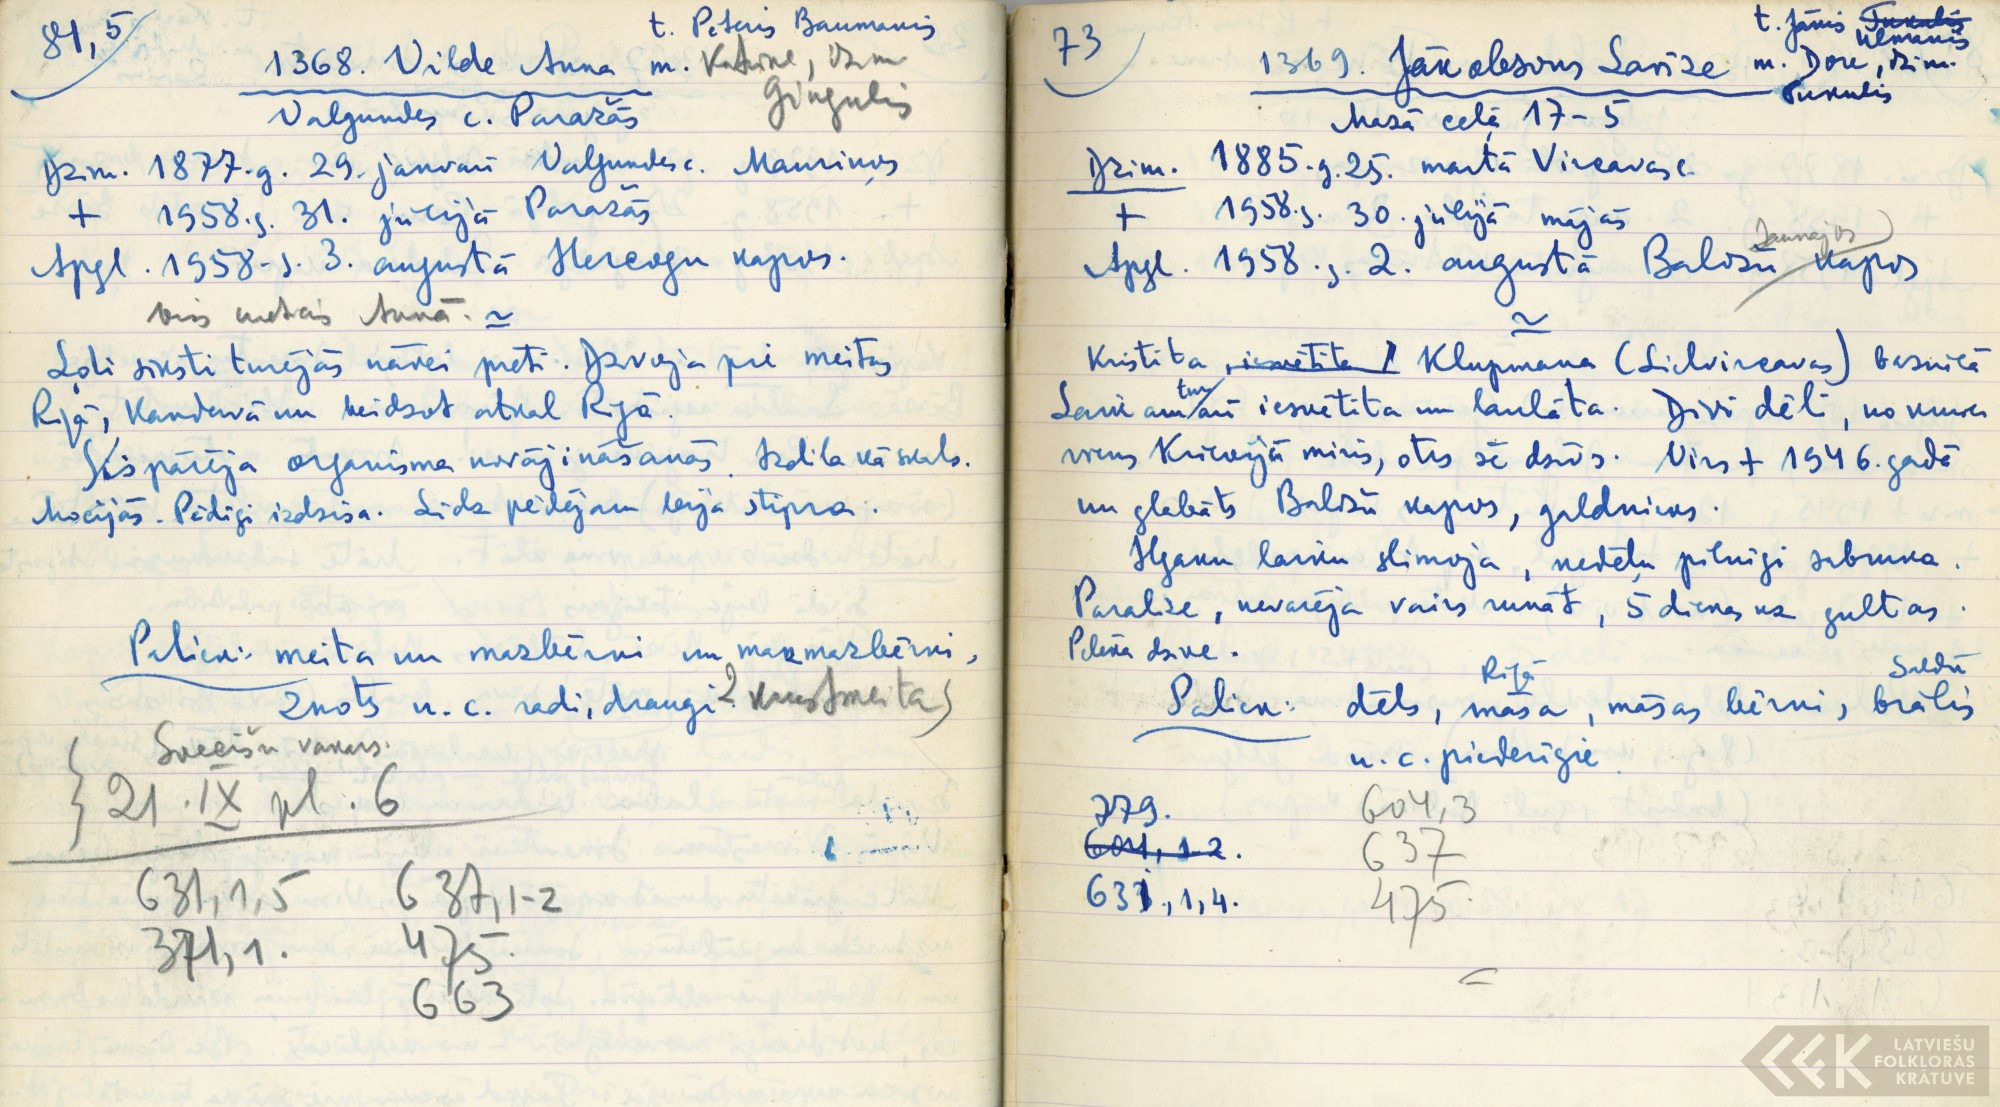 81,5
t. Peteris Baumanis
1368. Vilde Anna m. Katrīne, dzim.
Gingulis
Valgundes c. Paražās
Dzim. 1877.g. 29. janvarī Valgundes c. Mauriņos
+ 1958.g. 31. jūlijā Paražās
Apgl. 1958.g. 3. augustā Hercogu kapos.
viss metāis Annā.
Ļoti sīksti turējās nāvei preti. Dzīvoja pie meitas
Rīgā, Kandavā un beidzot atkal Rīgā.
Vispārēja organisma novājināšanās. Izdila kā skals.
Mocījās. Pēdīgi izdzisa. Līdz pēdējam bija stipra.
Paliek: meita un mazbērni un mazmazbērni,
znots u.c. radi, draugi. krustmeita
Svecīšu vakars.
21. IX pl. 6
631,1,5 637,1-2
371,1. 475.
663
73
t. Jānis Tukulis
Ulmanis
1369. Jākobsons Larize m. Dore, dzim.
Tukulis
Mazā ceļā 17-5
Dzim. 1885.g. 25. martā Vircavas c.
+ 1958.g. 30. jūlijā mājās
Jaunajos
Apgl. 1958.g. 2. augustā Baložu kapos
Kristita, iesvētita Klupmaņa (Lielvircavas) baznicā
tur
Laikam arī iesvētita un laulāta. Divi dēli, no kuriem
viens Krievijā miris, otrs šē dzīvs. Virs + 1946. gadā
un glabāts Baložu kapos, galdnieks.
Ilgāku laiku slimoja, nedēļu pilnīgi sabruka.
Paralize, nevarēja vairs runāt, 5 dienas uz gultas.
Pelēka dzīve.
Rīgā Saldū
Paliek: dēls, māsa, māsas bērni, brālis
u.c. piederīgie
779. 604,3
604,1-2. 637
631,1,4. 475
LATVIEŠU
FOLKLORAS
KRĀTUVE